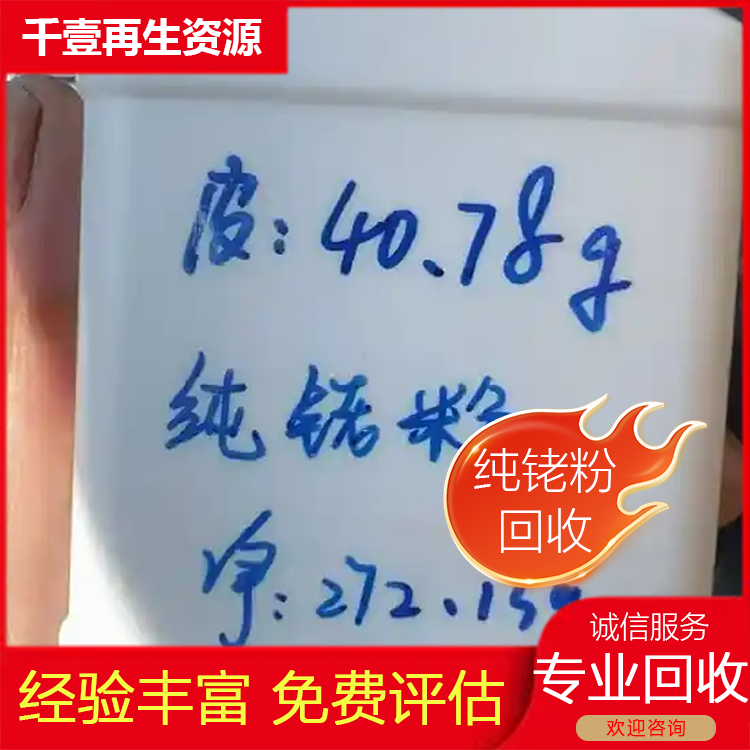 千壹再生资源
皮：40.78g
纯铑粉
纯铑粉
回收
净：272.15
诚信服务
经验丰富 免费评估
专业回收
欢迎咨询